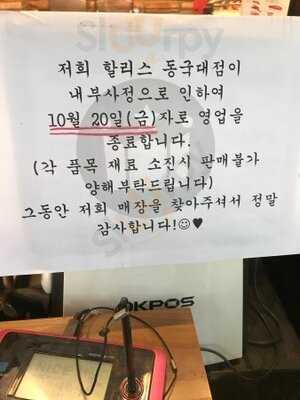 Sluurpy
저희 할리스 동국대점이
내부사정으로 인하여
10월 20일(금)자로 영업을
종료합니다.
(각 품목 재료 소진시 판매불가
양해부탁드립니다)
그동안 저희 매장을 찾아주셔서 정말
감사합니다!☺♥
OKPOS